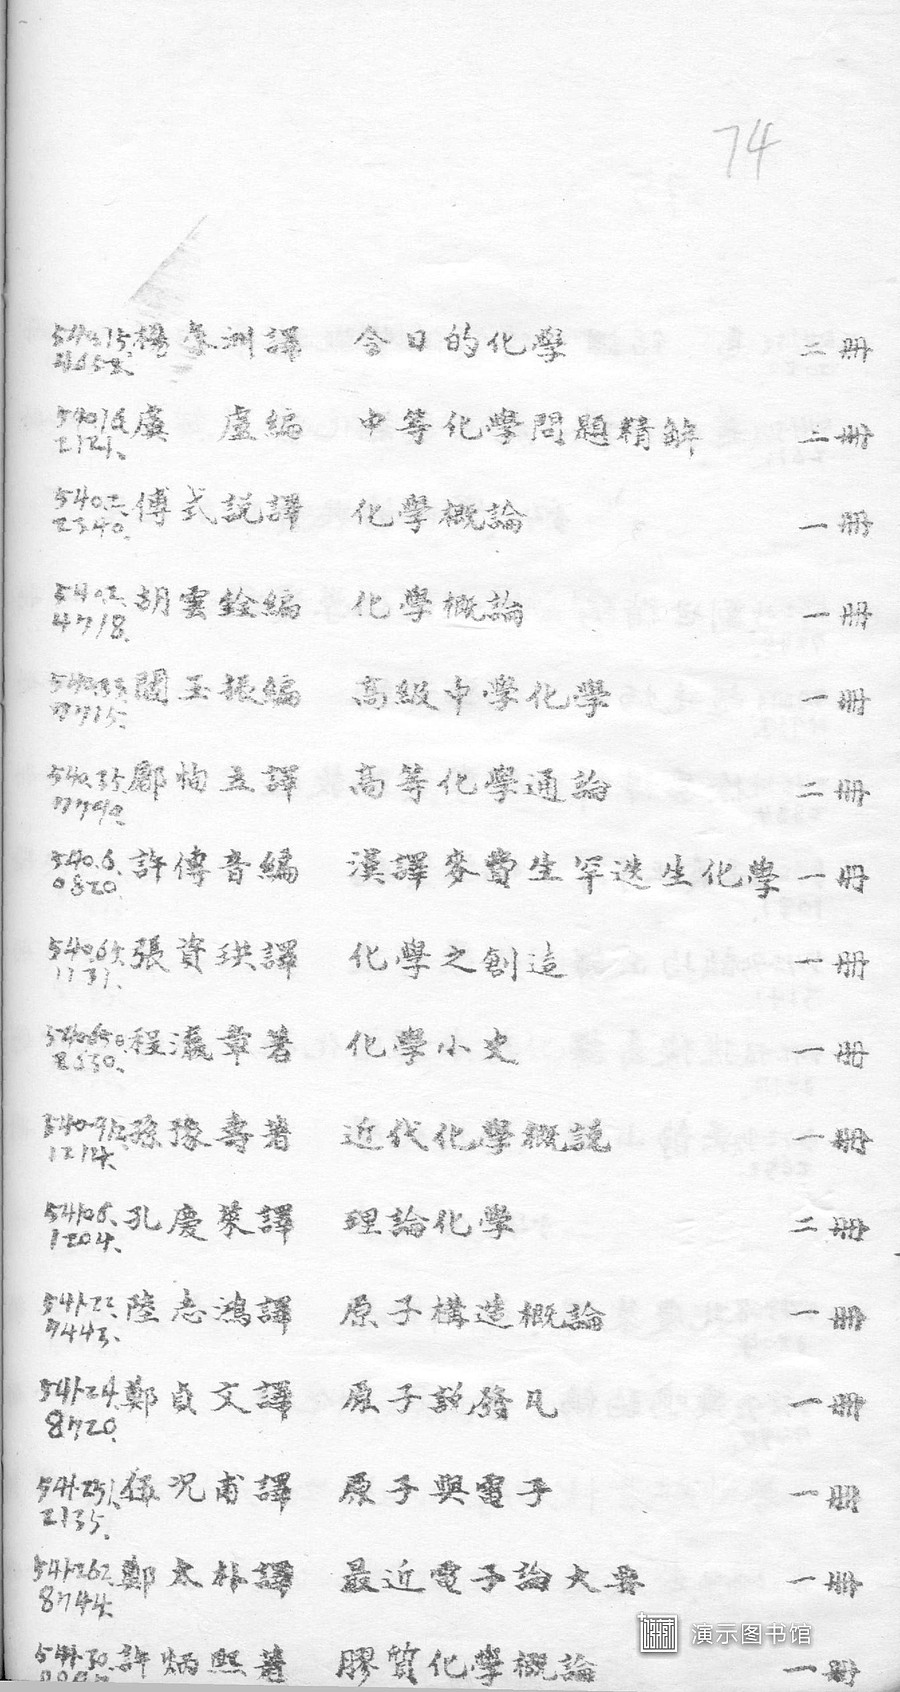 74
楊春洲譯 今日的化學 二冊
540.16. 虞 盧編 中等化學問題精解 二冊
2121.
540.2. 傅式説譯 化學概論 一冊
2340.
540.2. 胡雲銓編 化學概論 一冊
4718.
閻玉振編 高級中學化學 一冊
7715.
540.35. 鄺恂立譯 高等化學通論 二冊
7790.
540.6. 許傳音編 漢譯麥費生罕迭生化學 一冊
0820.
540.65. 張資珙譯 化學之創造 一冊
1131.
程瀛章著 化學小史 一冊
2630.
孫豫壽著 近代化學概説 一冊
1214.
541.06. 孔慶萊譯 理論化學 二冊
1204.
541.22. 陸志鴻譯 原子構造概論 一冊
7443.
541.24. 鄭貞文譯 原子説發凡 一冊
8720.
541.251. 伍況甫譯 原子與電子 一冊
2135.
541.262. 鄭太朴譯 最近電子論大要 一冊
8744.
541.30. 許炳熙著 膠質化學概論 一冊
演示图书馆